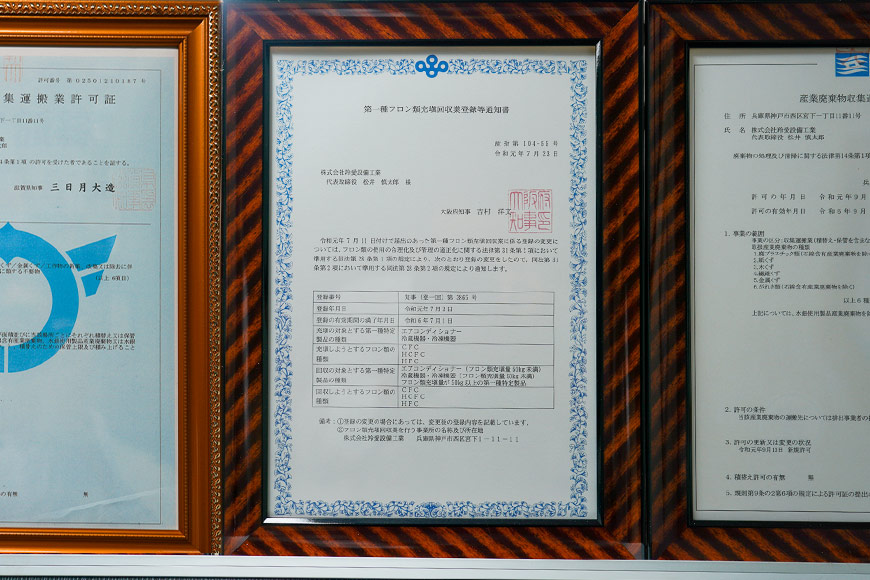 許可番号 第 02501210187 号
集運搬業許可証
丁目11番11号
条第1項の許可を受けた者であることを証する。
滋賀県知事 三日月大造
の有無 無
第一種フロン類充塡回収業登録等通知書
産指第 104-55 号
令和元年7月23日
株式会社羚愛設備工業
代表取締役 松井 慎太郎 様
大阪府知事 吉村 洋文
令和元年7月11日付けで届出のあった第一種フロン類充塡回収業に係る登録の変更に
ついては、フロン類の使用の合理化及び管理の適正化に関する法律第31条第2項において
準用する同法第28条第1項の規定により、次のとおり登録の変更をしたので、同法第31
条第2項において準用する同法第28条第2項の規定により通知します。
登録番号 知事（登一回）第 3865 号
登録年月日 令和元年7月2日
登録の有効期間の満了年月日 令和6年7月1日
充塡の対象とする第一種特定
製品の種類
エアコンディショナー
冷蔵機器・冷凍機器
充塡しようとするフロン類の
種類
CFC
HCFC
HFC
回収の対象とする第一種特定
製品の種類
エアコンディショナー（フロン類充塡量50kg未満）
冷蔵機器・冷凍機器（フロン類充塡量50kg未満）
フロン類充塡量が50kg以上の第一種特定製品
回収しようとするフロン類の
種類
CFC
HCFC
HFC
備考：①登録の変更の場合にあっては、変更後の登録内容を記載しています。
②フロン類充塡回収業を行う事業所の名称及び所在地
株式会社羚愛設備工業 兵庫県神戸市西区宮下1-11-11
産業廃棄物収集運
住所 兵庫県神戸市西区宮下一丁目11番11号
氏名 株式会社羚愛設備工業
代表取締役 松井 慎太郎
廃棄物の処理及び清掃に関する法律第14条第1項
許可の年月日 令和元年9月
許可の有効年月日 令和5年9月
1．事業の範囲
事業の区分：収集運搬業（積替え・保管を含む
取扱産業廃棄物の種類
1.廃プラスチック類（石綿含有産業廃棄物を除
2.紙くず
3.木くず
4.繊維くず
5.金属くず
6.がれき類（石綿含有産業廃棄物を除く）
以上6種
上記については、水銀使用製品産業廃棄物
2．許可の条件
当該産業廃棄物の運搬先については排出事業者の
3．許可の更新又は変更の状況
令和元年9月13日 新規許可
4．積替え許可の有無 無
5．規則第9条の2第6項の規定による許可証の提出の